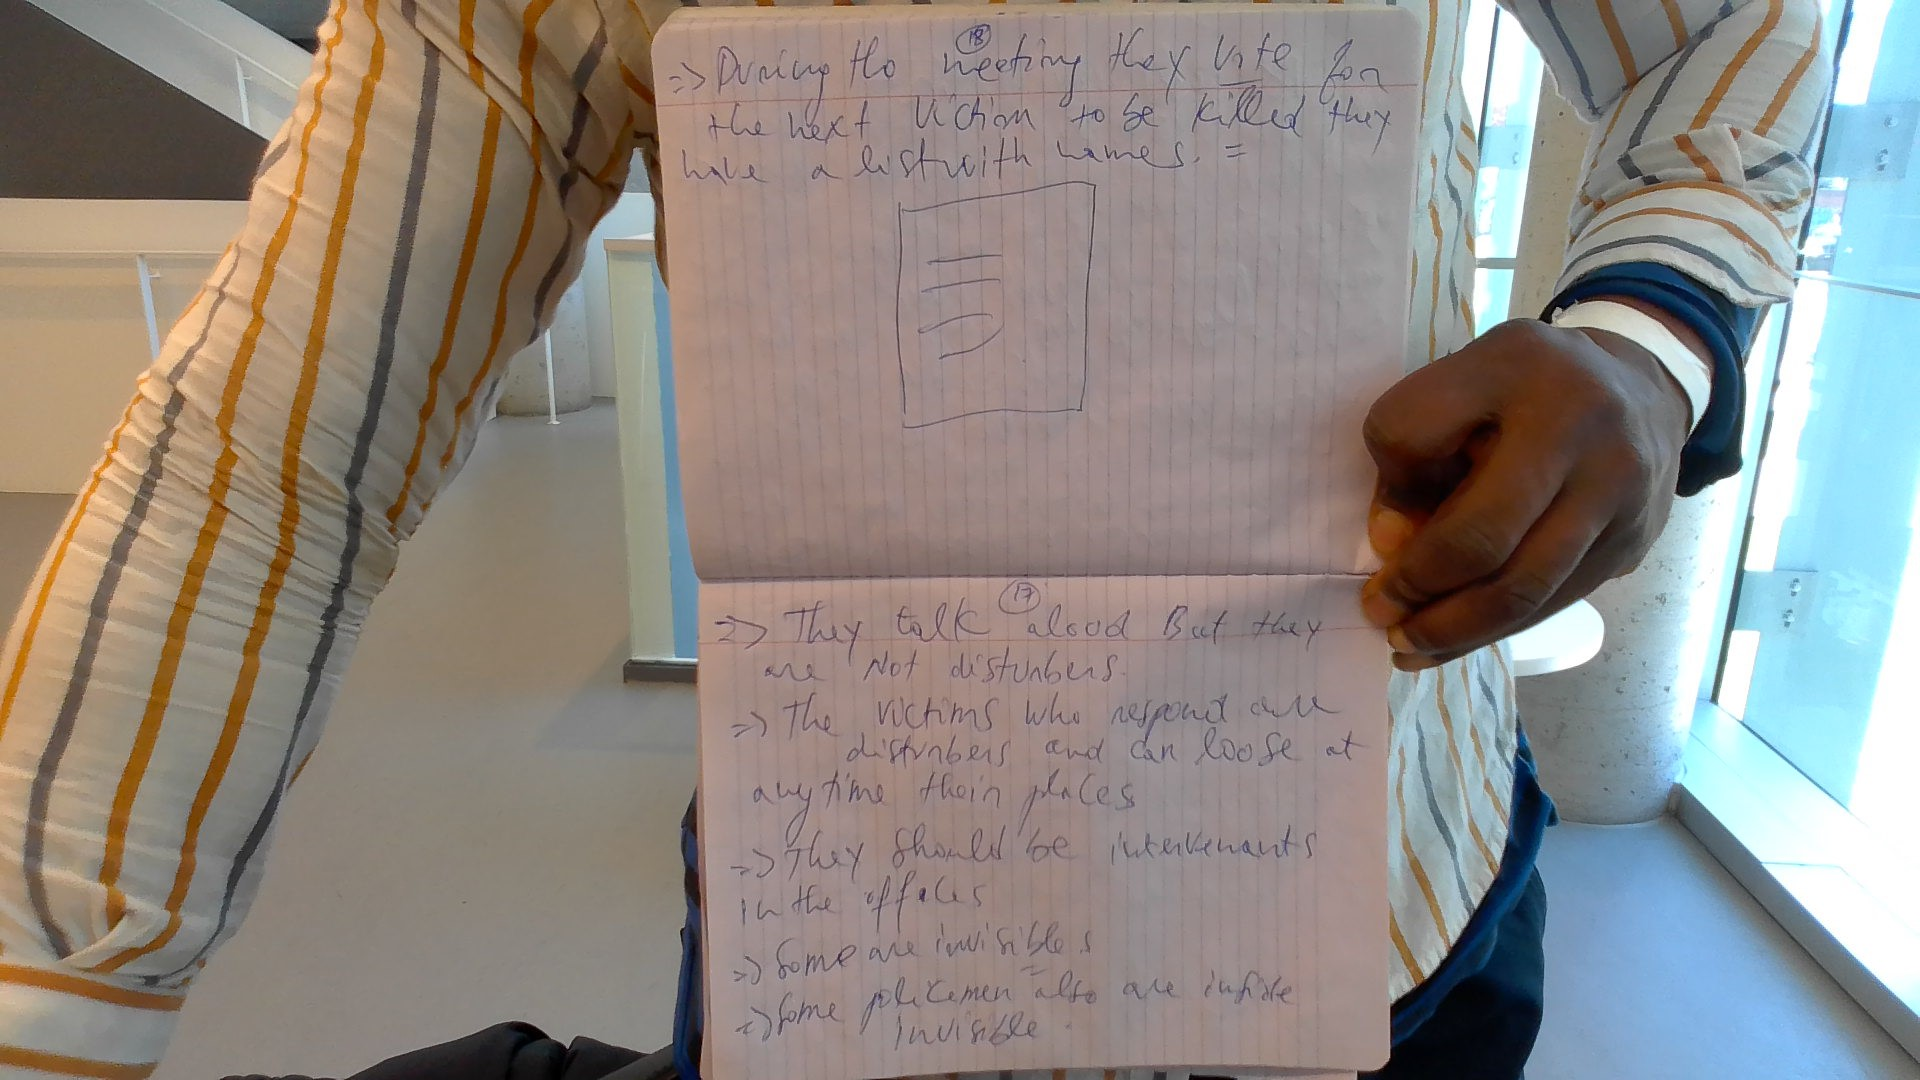 18
=> During the meeting they vote for
the next victim to be killed they
have a list with names. =
17
=> They talk aloud But they
are Not disturbers.
=> The victims who respond are
disturbers and can loose at
anytime their places
=> They should be intervenants
in the offices
=> Some are invisibles
=> Some policemen also are inside
invisible.